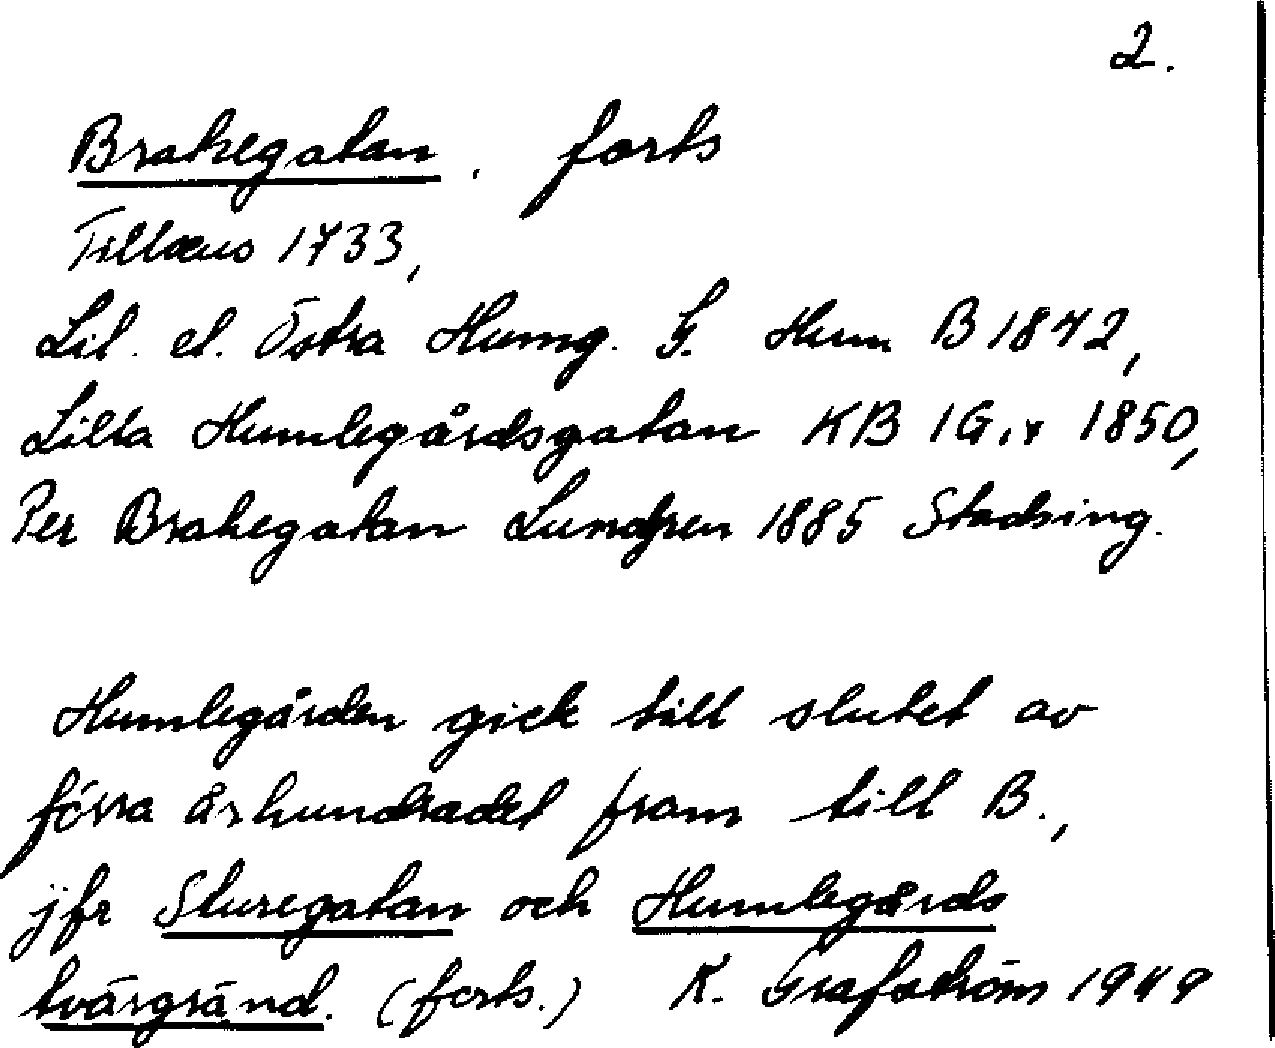 2.
Brahegatan. forts
Tillæus 1733,
Lil. el. Östra Humg. G. Hum B 1842,
Lilla Humlegårdsgatan KB 1850,
Per Brahegatan Lundgren 1885 Stadsing.
Humlegården gick till slutet av
förra århundradet fram till B.,
jfr Sturegatan och Humlegårds
tvärgränd. (forts.) K. Grafström 1949